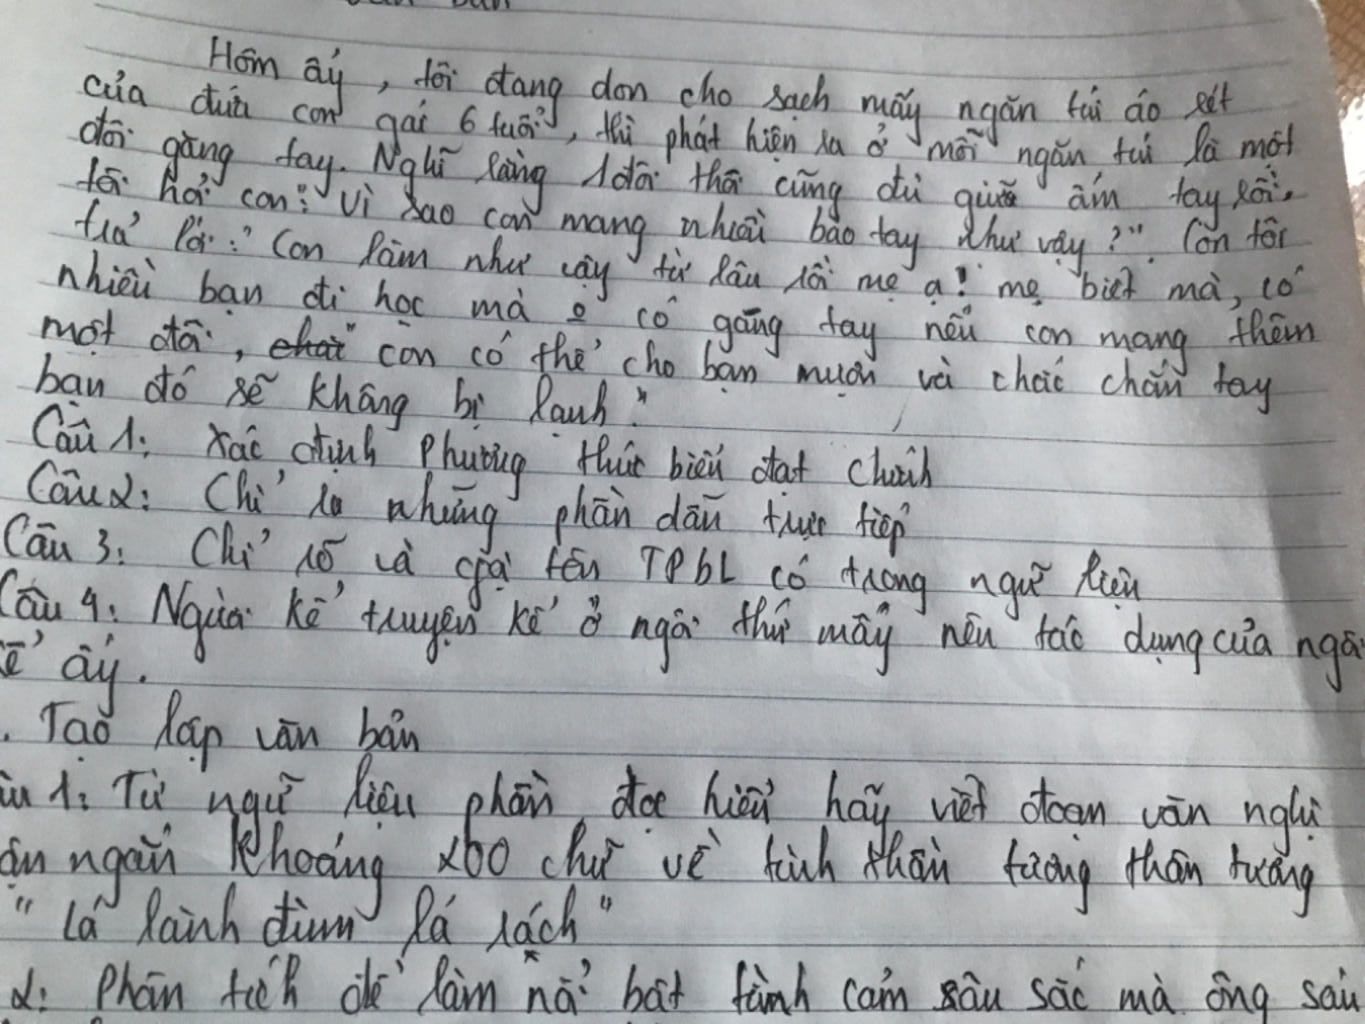 văn bản
Hôm ấy, tôi đang dọn cho sạch mấy ngăn túi áo rét
của đứa con gái 6 tuổi, thì phát hiện ra ở mỗi ngăn túi là một
đôi găng tay. Nghĩ rằng 1 đôi thôi cũng đủ giữ ấm tay rồi,
tôi hỏi con: "Vì sao con mang nhiều bao tay như vậy?". Con tôi
trả lời: "Con làm như vậy từ lâu rồi mẹ ạ! mẹ biết mà, có
nhiều bạn đi học mà o có găng tay nếu con mang thêm
một đôi, con có thể cho bạn mượn và chắc chắn tay
bạn đó sẽ không bị lạnh"
Câu 1: Xác định Phương thức biểu đạt chính
Câu 2: Chỉ ra những phần dẫn trực tiếp
Câu 3: Chỉ rõ và gọi tên TPBL có trong ngữ liệu
Câu 4: Người kể truyện kể ở ngôi thứ mấy nêu tác dụng của ngô
ể ấy.
. Tạo lập văn bản
âu 1: Từ ngữ liệu phần đọc hiểu hãy viết đoạn văn nghị
ận ngắn khoảng 200 chữ về tinh thần tương thân tương
"Lá lành đùm lá rách"
2: Phân tích để làm nổi bật tình cảm sâu sắc mà ông sáu